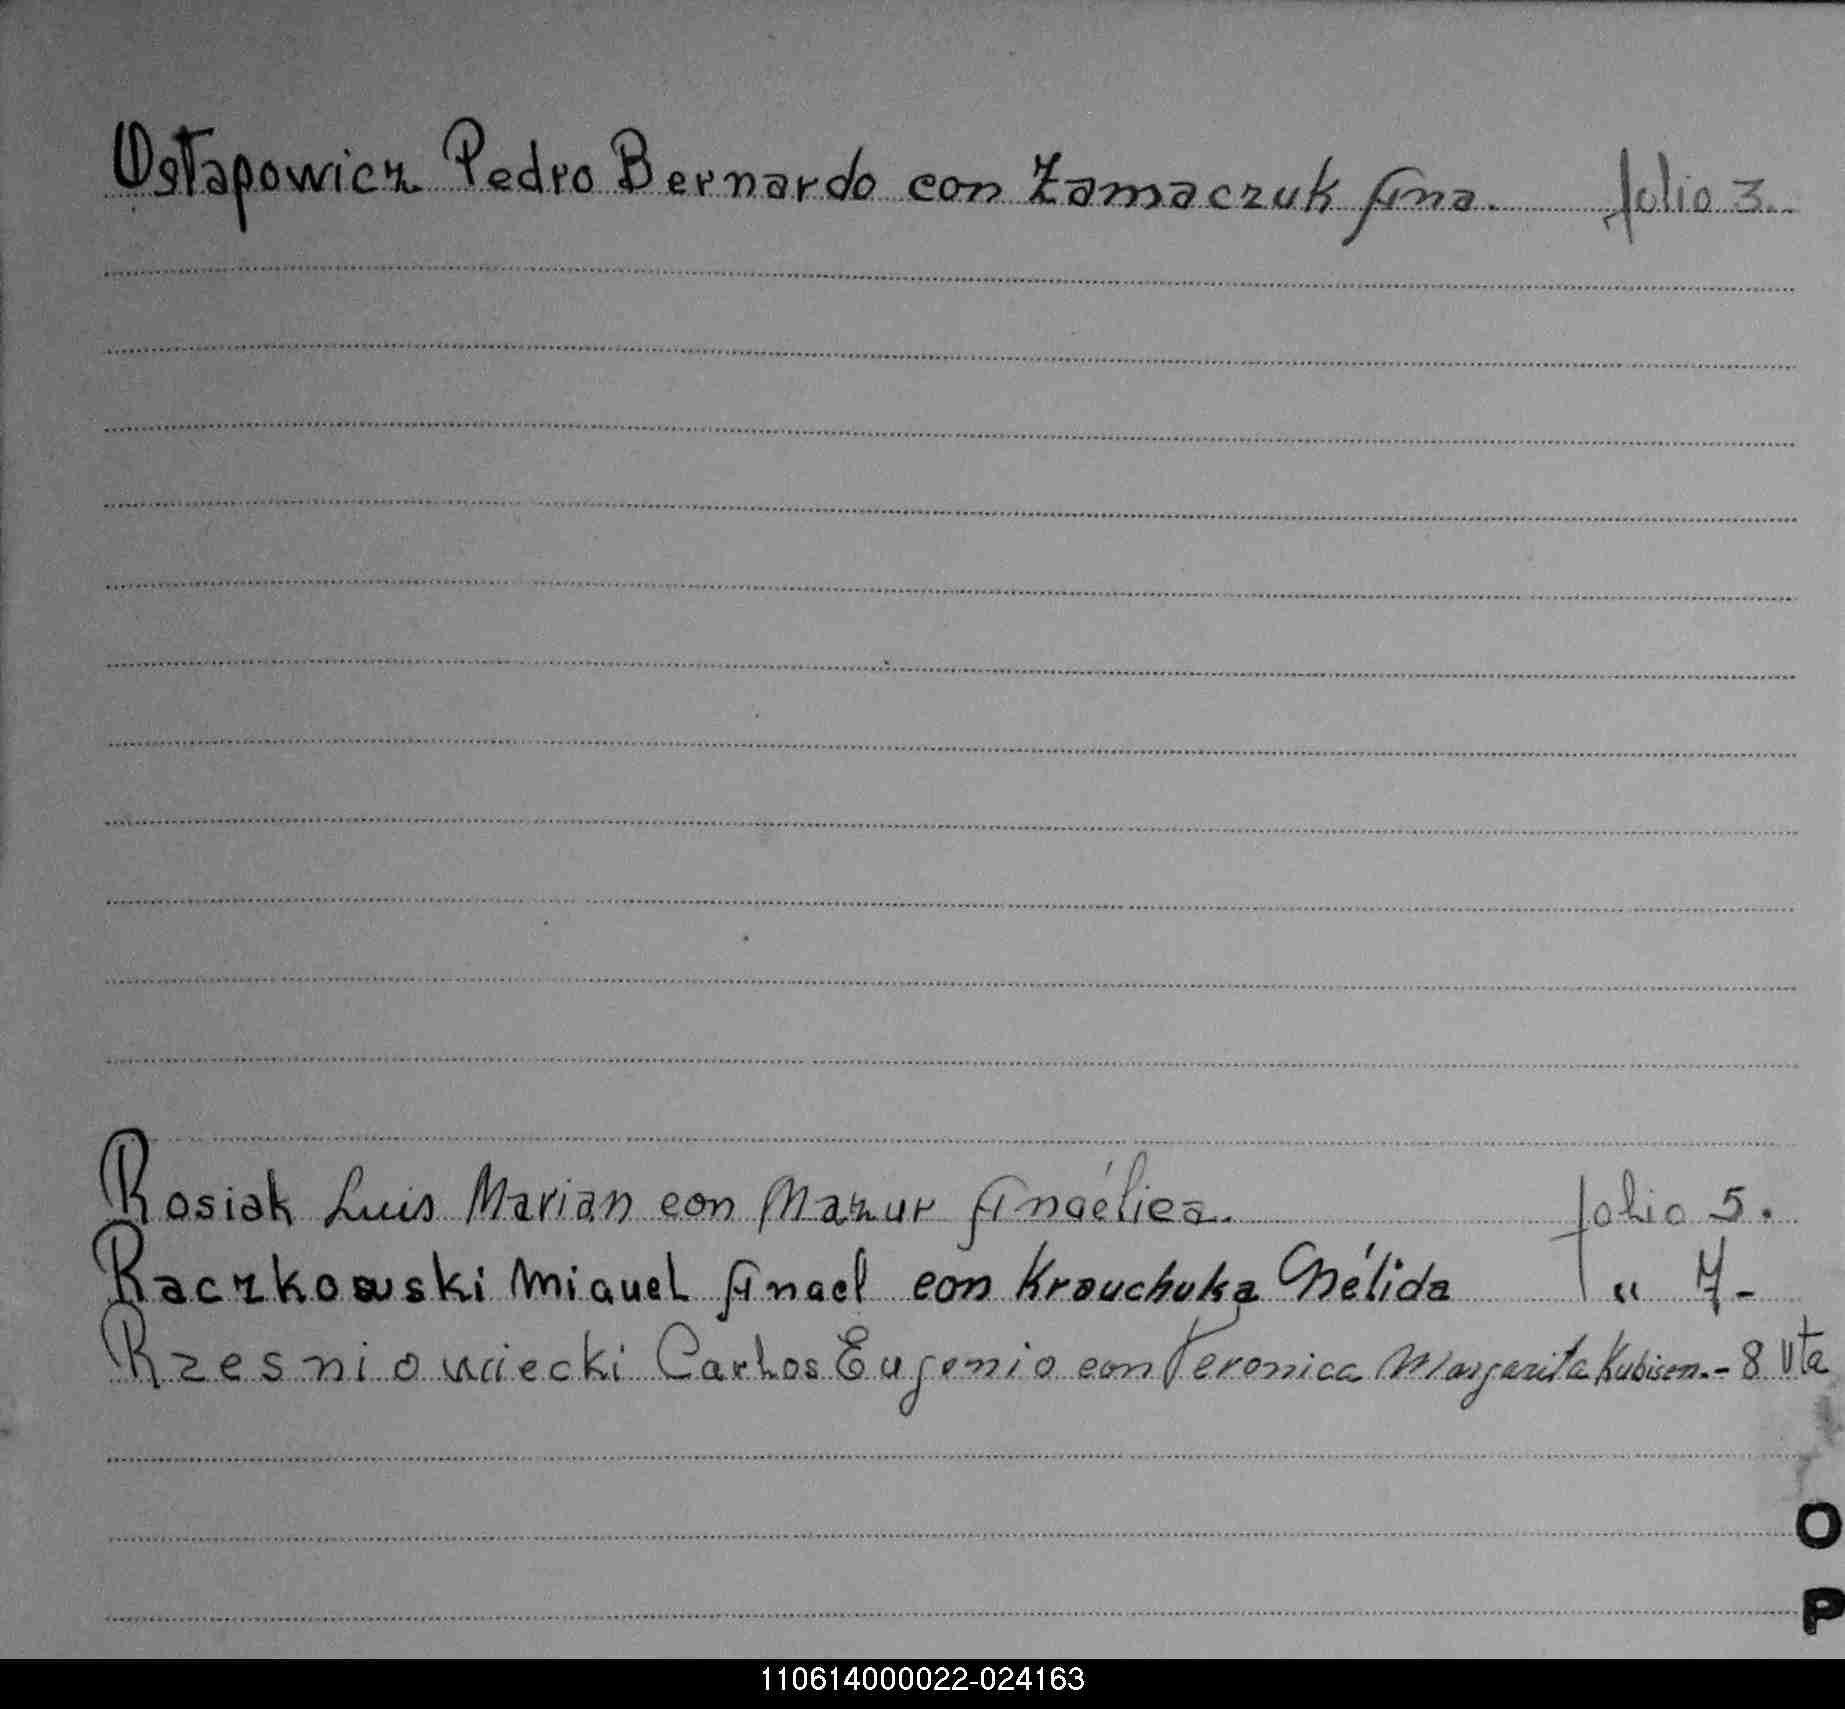 Ostapowicz Pedro Bernardo con Zamaczuk Ana. folio 3.
Rosiak Luis Marian con Mazur Angélica. folio 5.
Raczkowski Miguel Angel con Krauchuka Nélida " 7-
Rzesniowiecki Carlos Eugenio con Veronica Margarita Kubisen.- 8 Vta
O
P
110614000022-024163